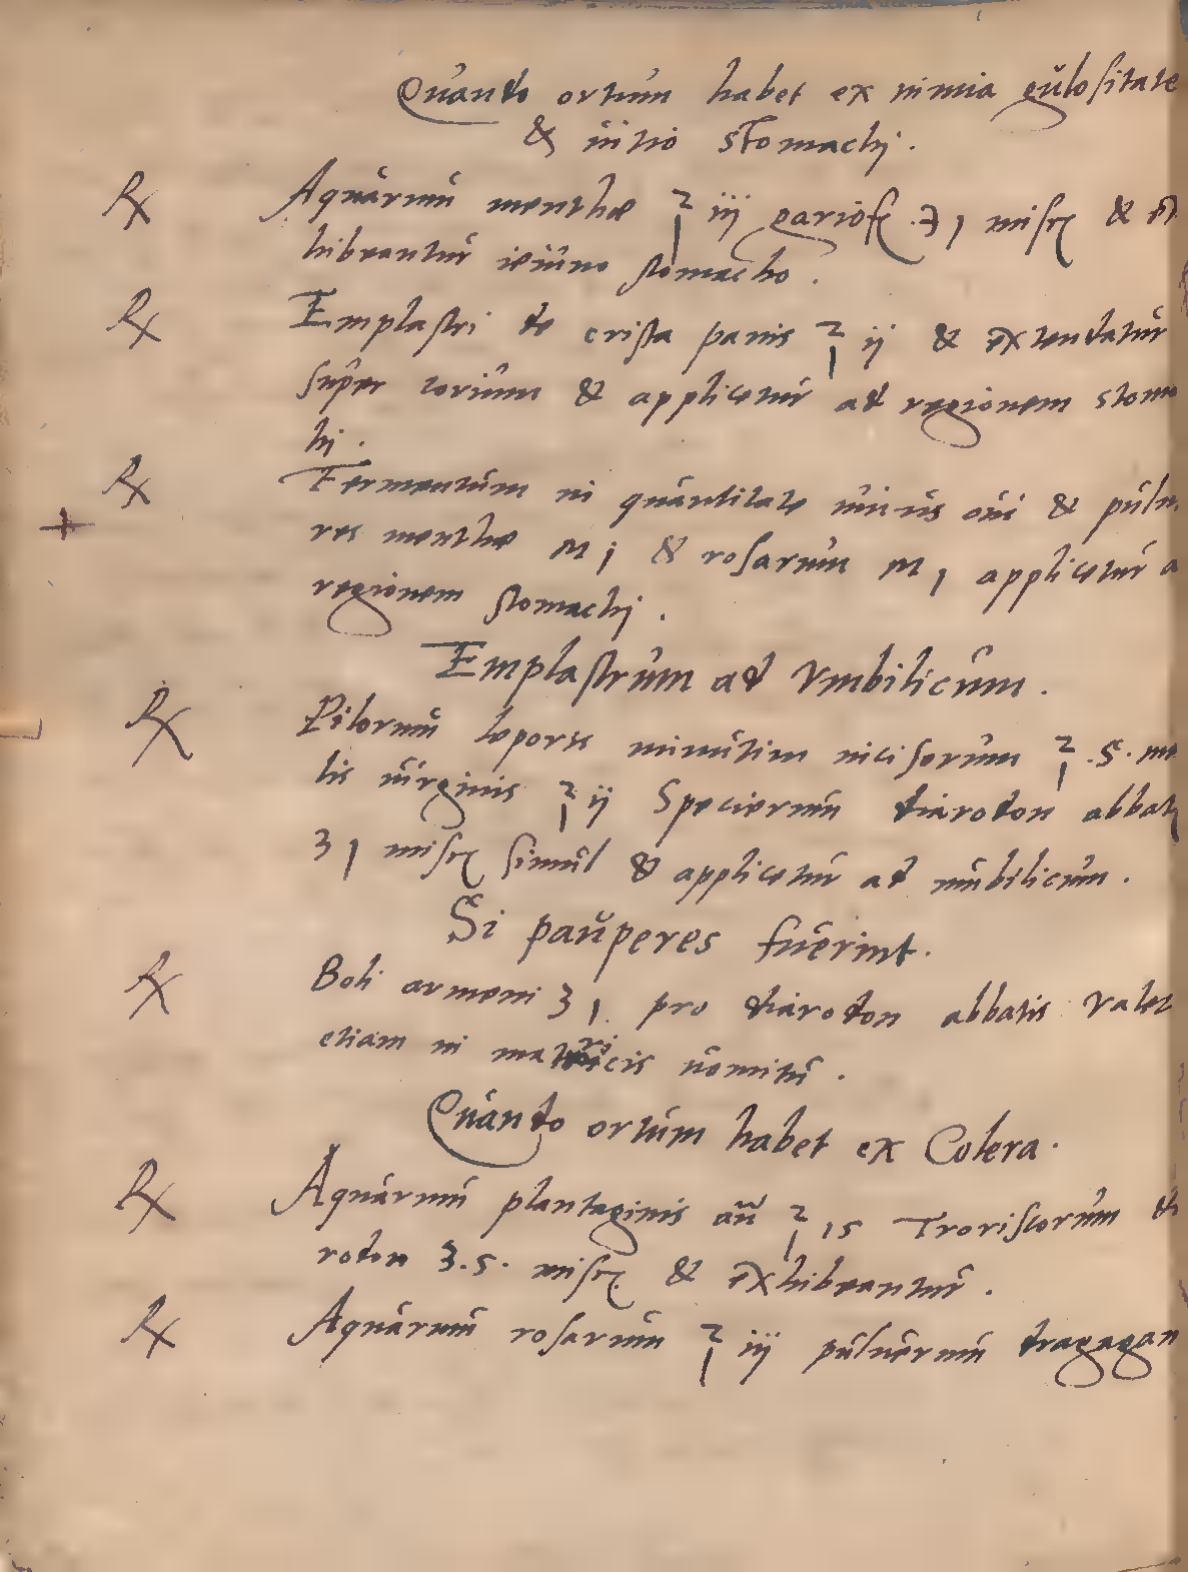 Quando ortum habet ex nimia gulositate
& uitio stomachj.
℞ Aquarum menthæ ℥ iij gariof. ʒ j misc. &
hibeantur ieiuno stomacho.
℞ Emplastri de crista panis ℥ ij & extendatur
super corium & applicetur ad regionem stoma
hj.
℞ Fermentum in quantitate unius oui & pulu
res menthæ M j & rosarum M j applicetur a
regionem stomachj.
Emplastrum ad Vmbilicum.
℞ Pilorum leporis minutim incisorum ℥ .s. me
lis uirginis ℥ ij Specierum diarodon abbat
ʒ j misc. simul & applicetur ad umbilicum.
Si pauperes fuerint.
℞ Boli armeni ʒ j. pro diarodon abbatis Valet
etiam in matricis uomitu.
Quando ortum habet ex Colera.
℞ Aquarum plantaginis añ ℥ js Trociscorum di
rodon ʒ.s. misc. & exhibeantur.
℞ Aquarum rosarum ℥ iij puluerum dragagan